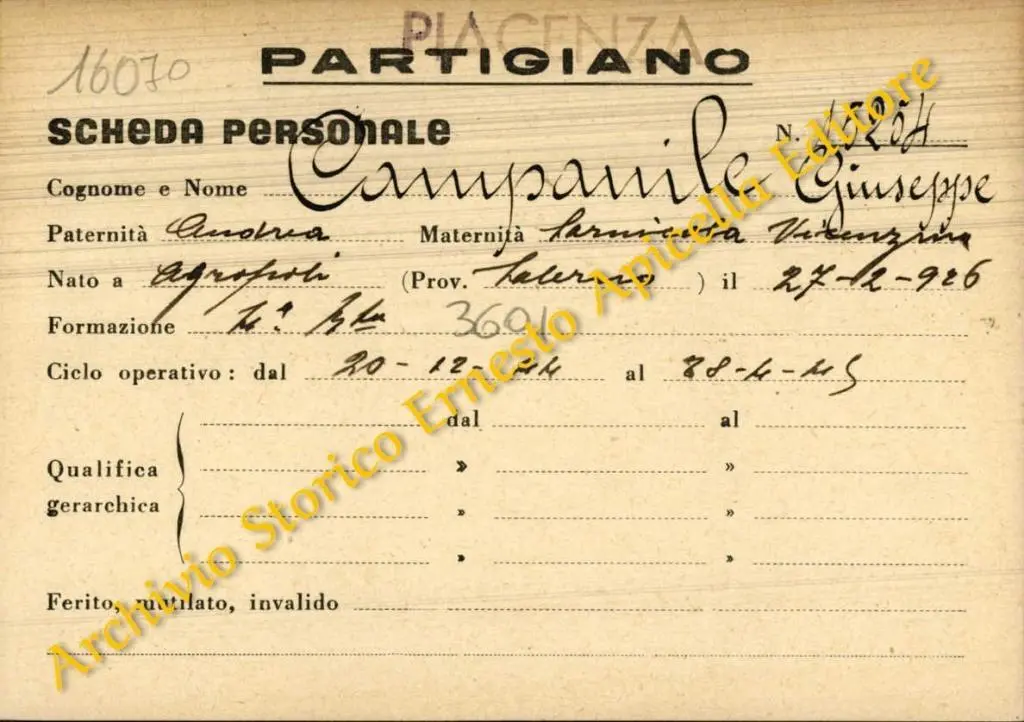 PIACENZA
16070
PARTIGIANO
SCHEDA PERSONALE N. 15254
Cognome e Nome Campanile Giuseppe
Paternità Andrea Maternità Vicenzina
Nato a Agropoli (Prov. Salerno ) il 27-2-926
Formazione 4ª
Ciclo operativo: dal 20-12-44 al 28-4-45
dal al
Qualifica » »
gerarchica » »
» »
Ferito, mutilato, invalido
Archivio Storico Ernesto Apicella Editore